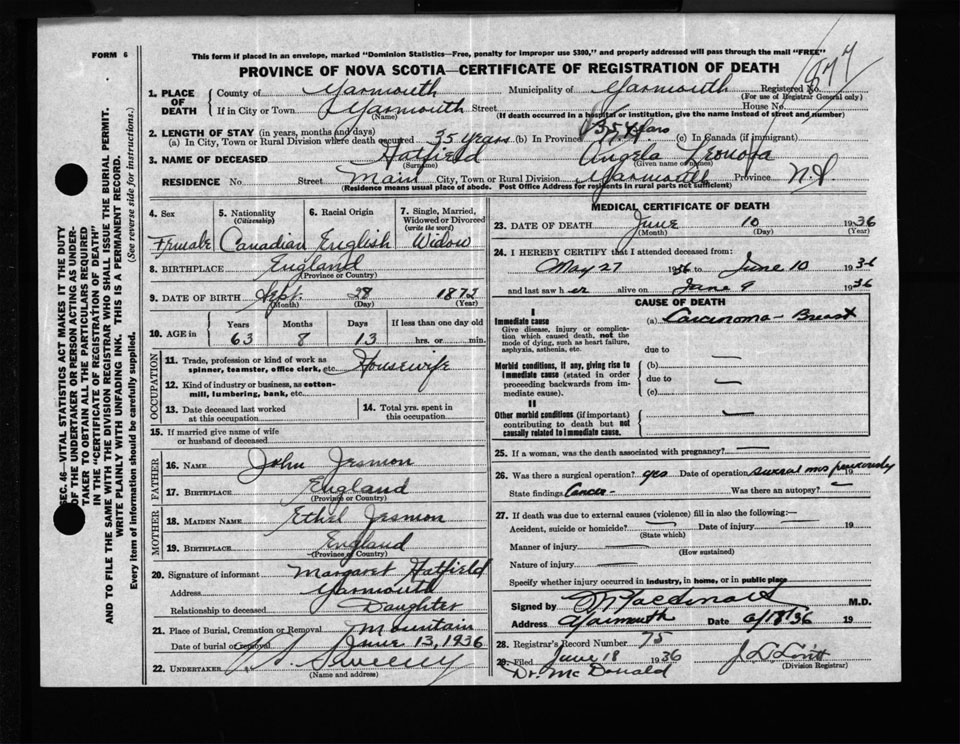 FORM 6
This form if placed in an envelope, marked "Dominion Statistics—Free, penalty for improper use $300," and properly addressed will pass through the mail "FREE"
PROVINCE OF NOVA SCOTIA—CERTIFICATE OF REGISTRATION OF DEATH
1. PLACE OF DEATH County of Yarmouth Municipality of Yarmouth Registered No.
(For use of Registrar General only)
If in City or Town Yarmouth Street House No.
(Name) (If death occurred in a hospital or institution, give the name instead of street and number)
2. LENGTH OF STAY (in years, months and days)
(a) In City, Town or Rural Division where death occurred 35 years (b) In Province 35 years (c) In Canada (if immigrant)
3. NAME OF DECEASED Hatfield Angela Leonora
(Surname) (Given name or names)
RESIDENCE No. Street Main City, Town or Rural Division Yarmouth Province N.S
(Residence means usual place of abode. Post Office Address for residents in rural parts not sufficient)
4. Sex 5. Nationality (Citizenship) 6. Racial Origin 7. Single, Married, Widowed or Divorced (write the word)
Female Canadian English Widow
8. BIRTHPLACE England
(Province or Country)
9. DATE OF BIRTH Sept. 28 1872
(Month) (Day) (Year)
10. AGE in Years Months Days If less than one day old
63 8 13 hrs. or min.
OCCUPATION
11. Trade, profession or kind of work as spinner, teamster, office clerk, etc. Housewife
12. Kind of industry or business, as cotton-mill, lumbering, bank, etc.
13. Date deceased last worked at this occupation
14. Total yrs. spent in this occupation
15. If married give name of wife or husband of deceased
FATHER
16. NAME John Jesmon
17. BIRTHPLACE England
(Province or Country)
MOTHER
18. MAIDEN NAME Ethel Jesmon
19. BIRTHPLACE England
(Province or Country)
20. Signature of informant Margaret Hatfield
Address Yarmouth
Relationship to deceased Daughter
21. Place of Burial, Cremation or Removal Mountain
Date of burial or removal June 13, 1936
22. UNDERTAKER Sweeny
(Name and address)
MEDICAL CERTIFICATE OF DEATH
23. DATE OF DEATH June 10 1936
(Month) (Day) (Year)
24. I HEREBY CERTIFY that I attended deceased from:
May 27 1936 to June 10 1936
and last saw her alive on June 9 1936
CAUSE OF DEATH
I
Immediate cause (a) Carcinoma - Breast
Give disease, injury or complication which caused death, not the mode of dying, such as heart failure, asphyxia, asthenia, etc.
due to —
Morbid conditions, if any, giving rise to immediate cause (stated in order proceeding backwards from immediate cause).
(b)
due to —
(c)
II
Other morbid conditions (if important) contributing to death but not causally related to immediate cause. —
25. If a woman, was the death associated with pregnancy? —
26. Was there a surgical operation? yes Date of operation several mos previously 19
State findings Cancer - Was there an autopsy? —
27. If death was due to external causes (violence) fill in also the following: —
Accident, suicide or homicide? — Date of injury — 19
(State which)
Manner of injury —
(How sustained)
Nature of injury —
Specify whether injury occurred in industry, in home, or in public place
Signed by Macdonald M.D.
Address Yarmouth Date 6/18/36 19
28. Registrar's Record Number 75
29. Filed June 18 1936
(Division Registrar)
Dr. McDonald
SEC. 46—VITAL STATISTICS ACT MAKES IT THE DUTY
OF THE UNDERTAKER OR PERSON ACTING AS UNDER-
TAKER TO OBTAIN ALL THE PARTICULARS REQUIRED
IN THE "CERTIFICATE OF REGISTRATION OF DEATH"
AND TO FILE THE SAME WITH THE DIVISION REGISTRAR WHO SHALL ISSUE THE BURIAL PERMIT.
WRITE PLAINLY WITH UNFADING INK. THIS IS A PERMANENT RECORD.
Every item of information should be carefully supplied. (See reverse side for instructions.)